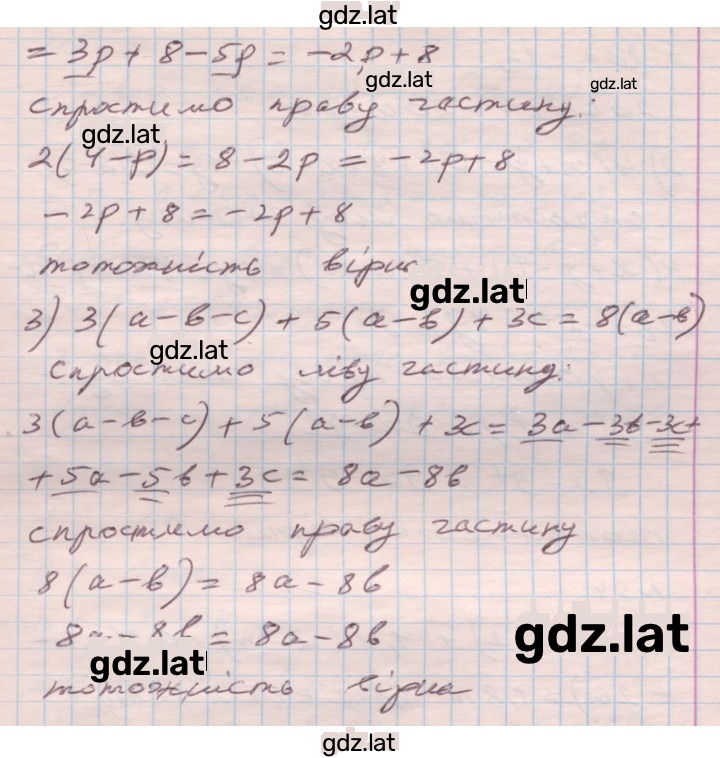 gdz.lat
= 3p + 8 - 5p = -2p + 8
gdz.lat
gdz.lat
спростимо праву частину:
gdz.lat
2(4-p) = 8 - 2p = -2p + 8
-2p + 8 = -2p + 8
тотожність вірна
gdz.lat
3) 3(a-в-c) + 5(a-в) + 3c = 8(a-в)
gdz.lat
спростимо ліву частину:
3(a-в-c) + 5(a-в) + 3c = 3a - 3в - 3c +
+ 5a - 5в + 3c = 8a - 8в
спростимо праву частину
8(a-в) = 8a - 8в
8a - 8в = 8a - 8в
gdz.lat
gdz.lat
тотожність вірна
gdz.lat